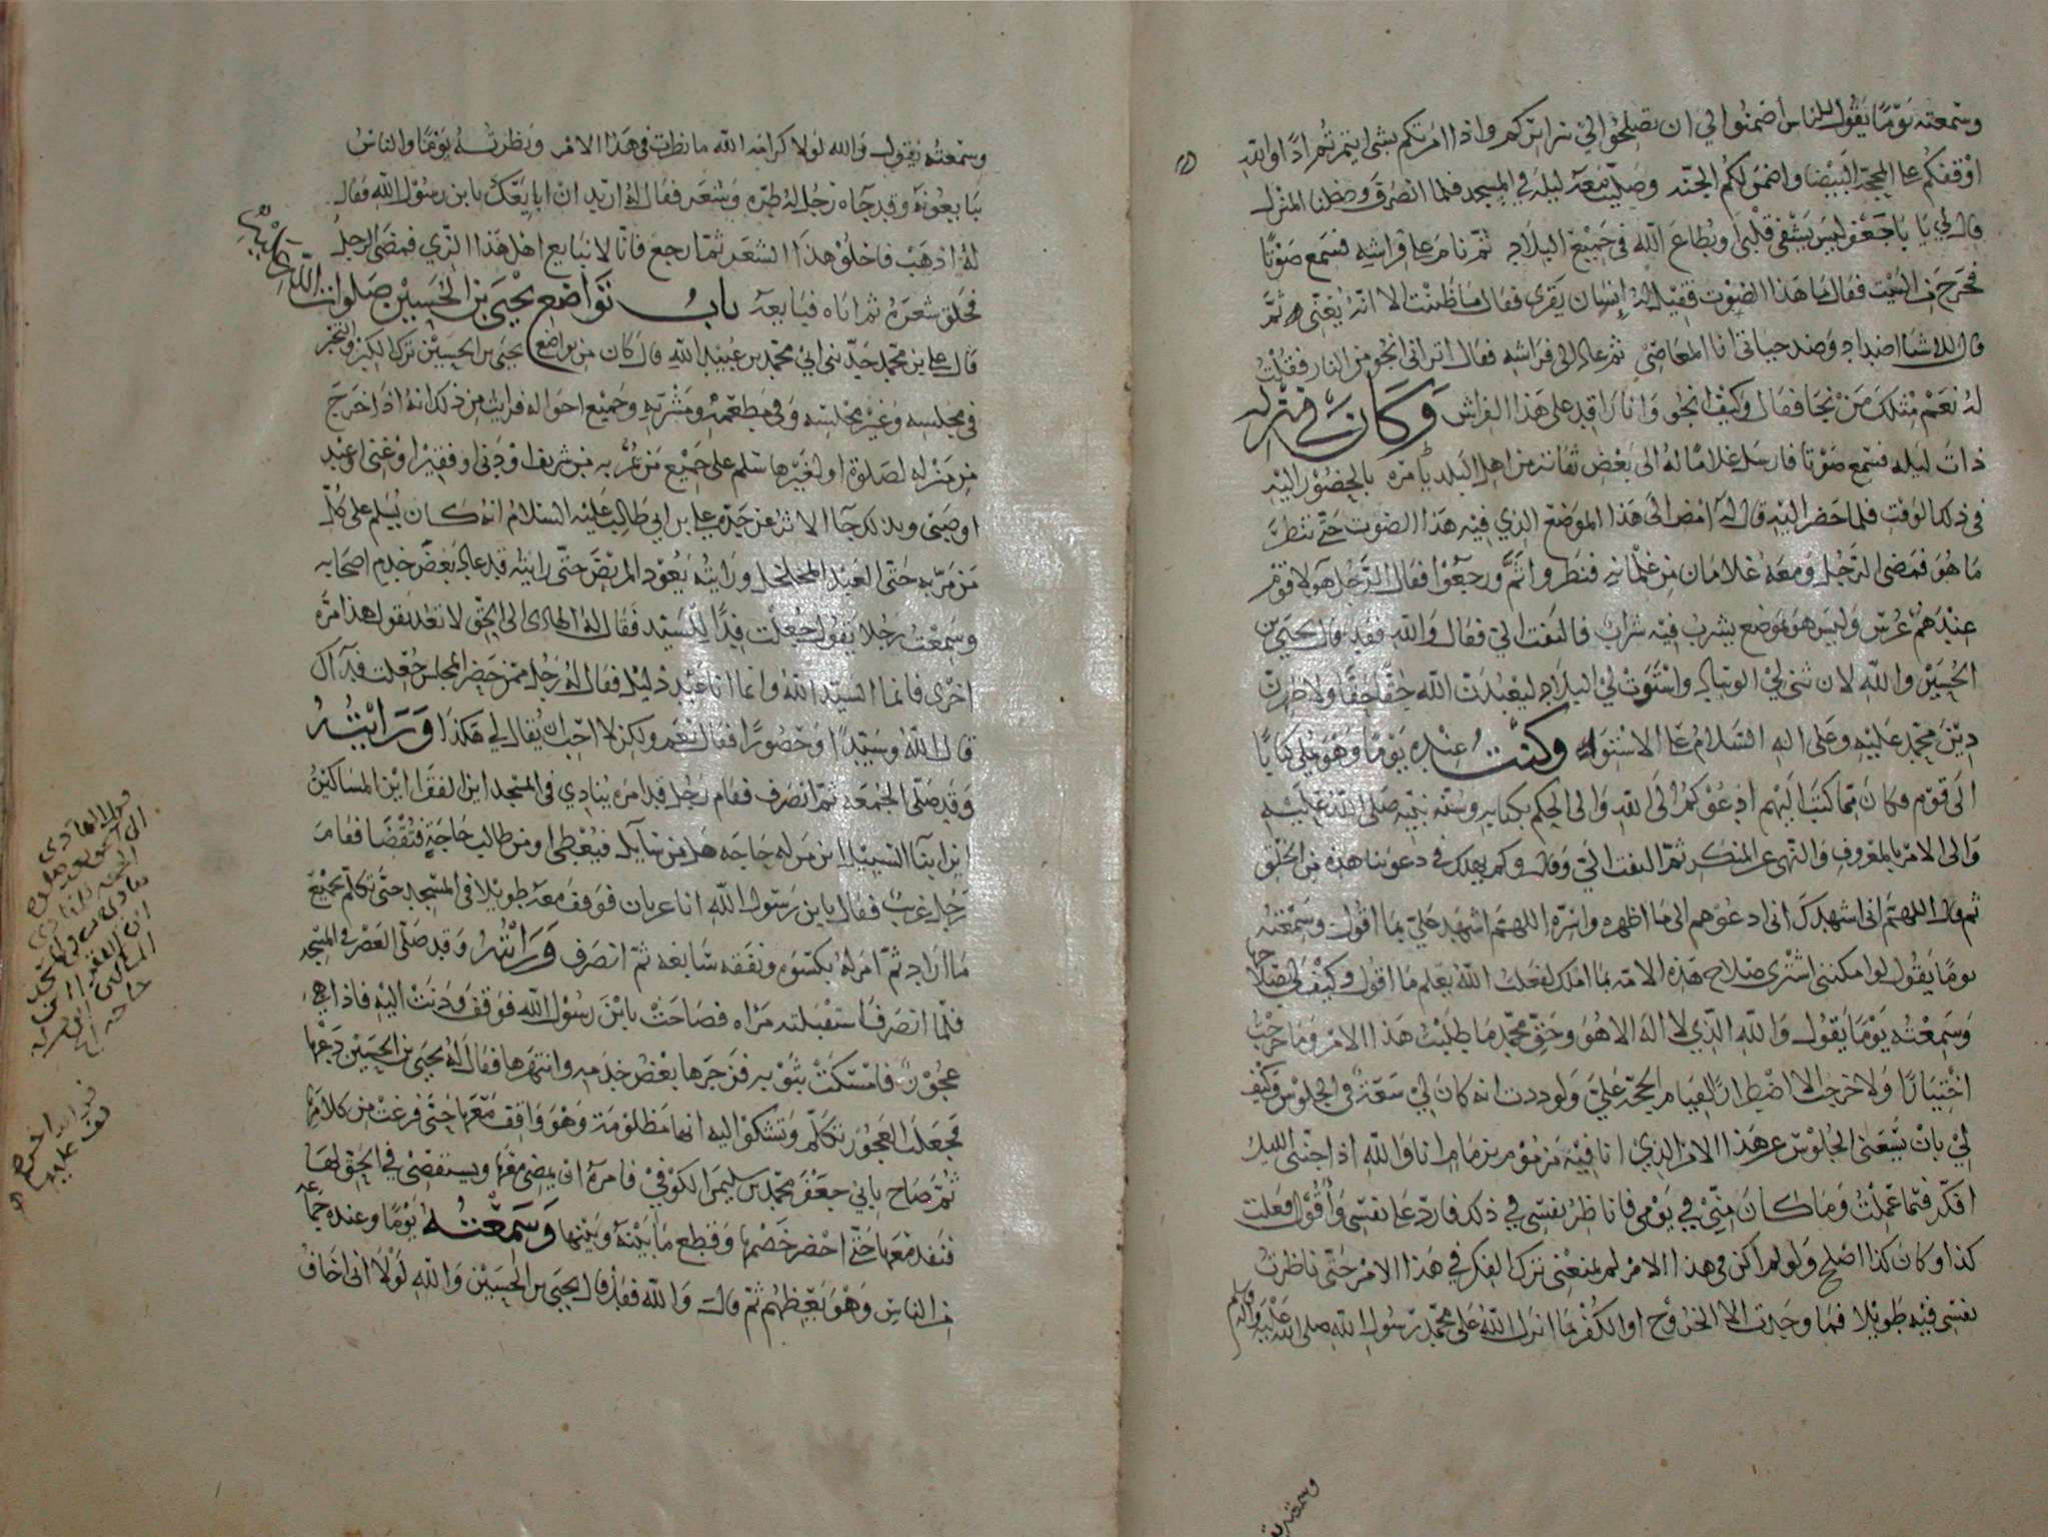 وسمعته يوما يقول للناس اضمنوا لي ان تصلحوا لي سرائركم واذا امرتكم بشي ايتمرتم اذا والله
اوقفكم على المحجة البيضا واضمن لكم الجنه وصليت معه ليله في المسجد فلما انصرف ودخلنا المنزل
قال لي يا با جعفر ليس يشفى قلبي او يطاع الله في جميع البلاد ثم نام على فراشه فسمع صوتا
فخرج من البيت فقال ما هذا الصوت فقيل له انسان يقرى فقال ما ظننت الا انه يغني ثم
قال لله اشيا اضداد وضد حياتي انا المعاصي ثم عاد الى فراشه فقال اتراني انجو من النار فقلت
له نعم مثلك من نجا فقال وكيف انجو وانا راقد على هذا الفراش وكان في منزله
ذات ليله فسمع صوتا فارسل غلاما له الى بعض ثقاته من اهل البلد يامره بالحضور اليه
في ذلك الوقت فلما حضر اليه قال له امض الى هذا الموضع الذي فيه هذا الصوت حتى تنظر
ما هو فمضى الرجل ومعه غلامان من غلمانه فنظروا ثم ورجعوا فقال الرجل هولا قوم
عندهم عرس وليس هو موضع يشرب فيه شراب فالتفت الي فقال والله فقد قال يحيى بن
الحسين والله لان ثني لي الوساد واستوت لي البلاد ليعبدن الله حقا حقا ولاظهرن
دين محمد عليه وعلى اله السلام على الاستواء وكنت عنده يوما وهو يملي كتابا
الى قوم فكان مما كتب اليهم ادعوكم الى الله والى الحكم بكتابه وسنة نبيه صلى الله عليه
والى الامر بالمعروف والنهي عن المنكر ثم التفت الي وقال وكم يهلك في دعوتنا هذه من الخلق
ثم قال اللهم اني اشهدك اني ادعوهم الى ما اظهره واسره اللهم اشهد علي بما اقول وسمعته
يوما يقول لو امكنني اشتري صلاح هذه الامه بما املك لفعلت الله يعلم ما اقول وكيف لي بصلاحها
وسمعته يوما يقول والله الذي لا اله الا هو وحق محمد ما طلبت هذا الامر وما خرجت
اختيارا ولا خرجت الا اضطرارا لقيام الحجة علي ولوددت انه كان لي سعة في الجلوس وكيف
لي بان يسعني الجلوس عن هذا الامر الذي انا فيه مزموم بزمام انا والله اذا جنني الليل
افكر فيما عملت وما كان مني في يومي فاناظر نفسي في ذلك فارد على نفسي واقول فعلت
كذا وكان كذا اصلح ولو لم اكن في هذا الامر لم يمنعني ترك الفكر في هذا الامر حتى ناظرت
نفسي فيه طويلا فما وجدت الا الخروج او الكفر بما انزل الله على محمد رسول الله صلى الله عليه واله وسلم
وسمعته يقول
وسمعته يقول والله لولا كرامة الله ما نظرت في هذا الامر ونظرته يوما والناس
يبايعونه وقد جاه رجل له طره وشعر فقال له اريد ان ابايعك يابن رسول الله فقال
له اذهب فاحلق هذا الشعر ثم ارجع فانا لا نبايع اهل هذا الزي فمضى الرجل
فحلق شعره ثم اتاه فبايعه باب تواضع يحيى بن الحسين صلوات الله عليه
قال علي بن محمد حدثني ابي محمد بن عبيد الله قال كان من تواضع يحيى بن الحسين ترك الكبر والتجبر
في مجلسه وغير مجلسه وفي مطعمه ومشربه وجميع احواله فرايت من ذلك انه اذا خرج
من منزله لصلوة او لغيرها سلم على جميع من مر به من شريف او دني او فقير او غني او عبد
او صبي وبذلك جا الاثر عن جده علي بن ابي طالب عليه السلام انه كان يسلم على كل
من مر به حتى العبد المخلخل ورايته يعود المريض حتى رايته قد عاد بعض خدم اصحابه
وسمعت رجلا يقول جعلت فدا للسيد فقال له الهادي الى الحق لا تعد تقول هذا مره
اخرى فانما السيد الله وانما انا عبد ذليل فقال له رجل ممن حضر المجلس جعلت فداك
قال الله وسيدا وحصورا فقال نعم ولكن لا احب ان يقال لي هكذا ورايته
وقد صلى الجمعه ثم انصرف فقام رجل قد امره ينادي في المسجد اين الفقرا اين المساكين
اين ابنا السبيل اين من له حاجه هل من سايل فيعطى او من طالب حاجة فتقضا فقام
رجل غريب فقال يابن رسول الله انا عريان فوقف معه طويلا في المسجد حتى تكلم بجميع
ما اراد ثم امر له بكسوه ونفقه سابغه ثم انصرف ورايته وقد صلى العصر في المسجد
فلما انصرف استقبلته مراه فصاحت يابن رسول الله فوقف ودنت اليه فاذا هي
عجوز فامسكت بثوبه فزجرها بعض خدمه وانتهرها فقال له يحيى بن الحسين دعها
فجعلت العجوز تتكلم وتشكوا اليه انها مظلومة وهو واقف معها حتى فرغت من كلامها
ثم صاح بابي جعفر محمد بن سليمن الكوفي فامره ان يمضي معها ويستقصي في الحق لها
فنفذ معها حتى احضر خصمها وقطع ما بينه وبينها وسمعته يوما وعنده جماعه
من الناس وهو يعظهم ثم قال والله فقد قال يحيى بن الحسين والله لولا اني اخاف